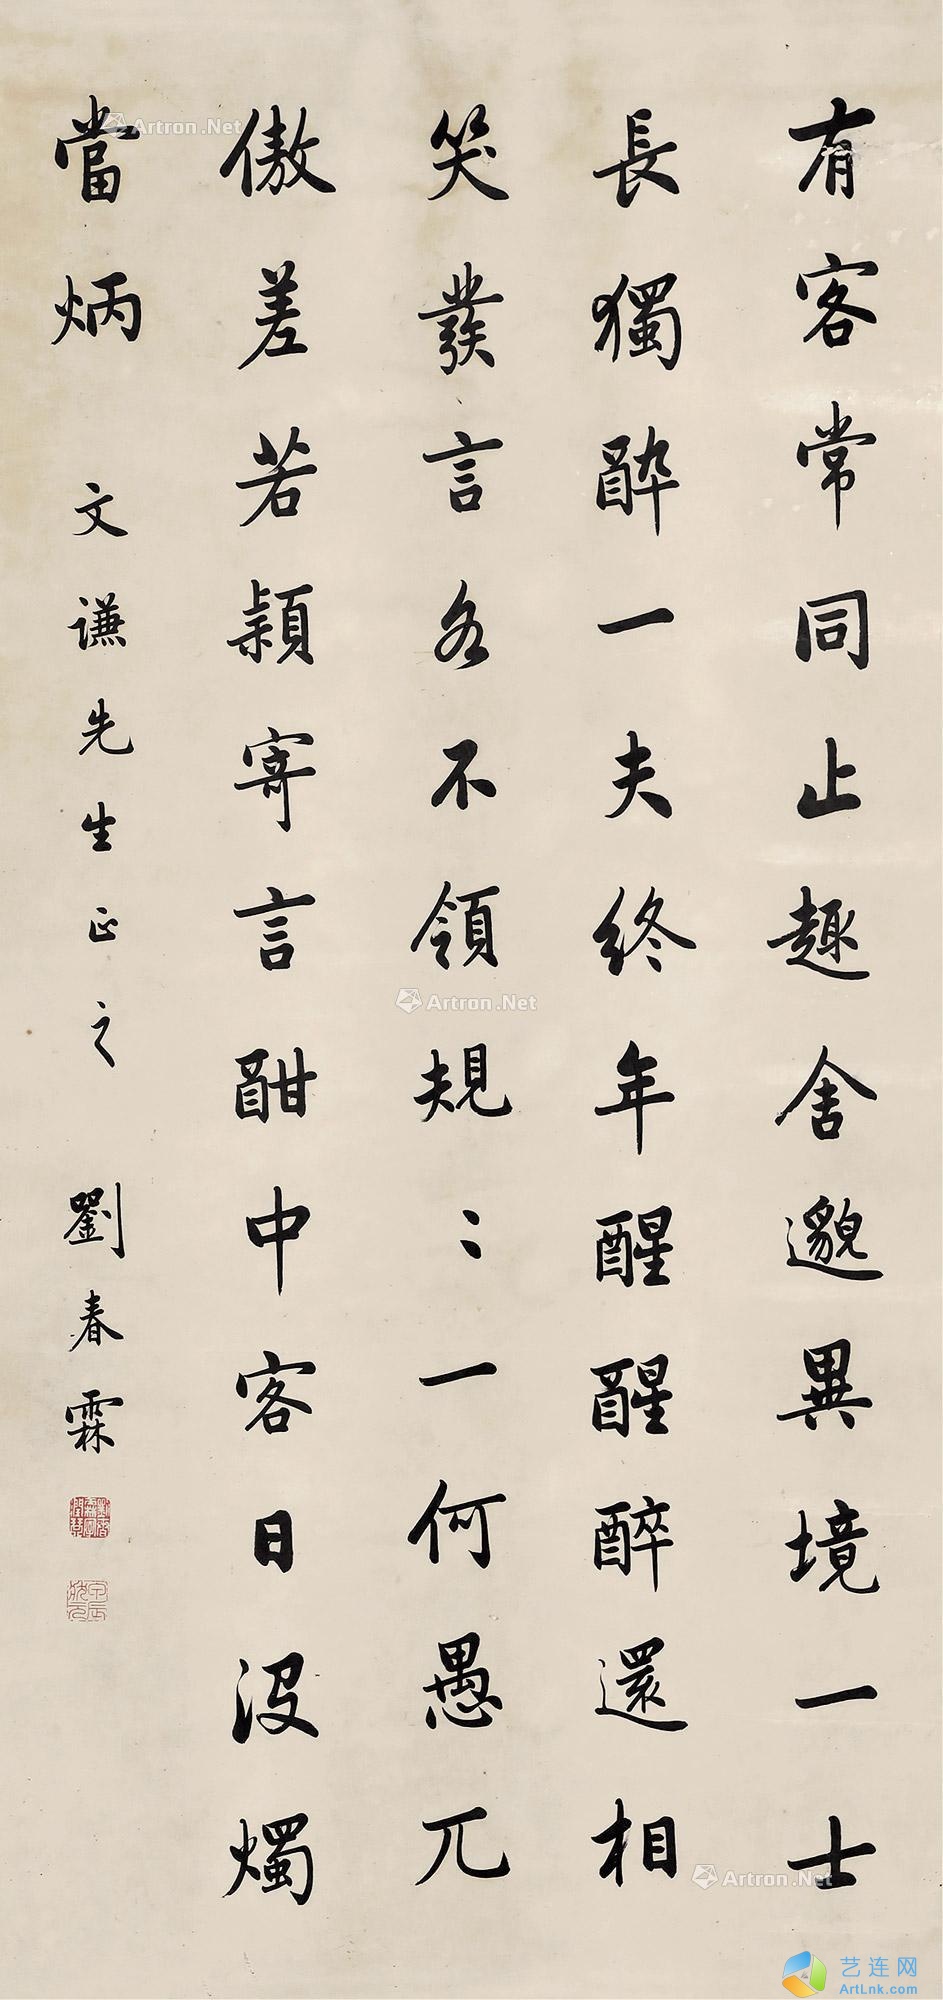 有客常同止趣舍邈異境一士
長獨醉一夫終年醒醒醉還相
笑發言各不領規〻一何愚兀
傲差若穎寄言酣中客日沒燭
當炳 文謙先生正之 劉春霖
甲辰狀元
Artron.Net
Artron.Net
Artron.Net
Artron.Net
艺连网
ArtLnk.com